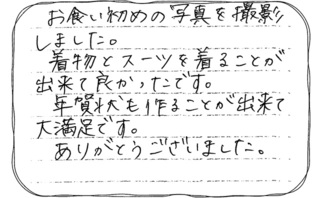 お食い初めの写真を撮影
しました。
着物とスーツを着ることが
出来て良かったです。
年賀状も作ることが出来て
大満足です。
ありがとうございました。